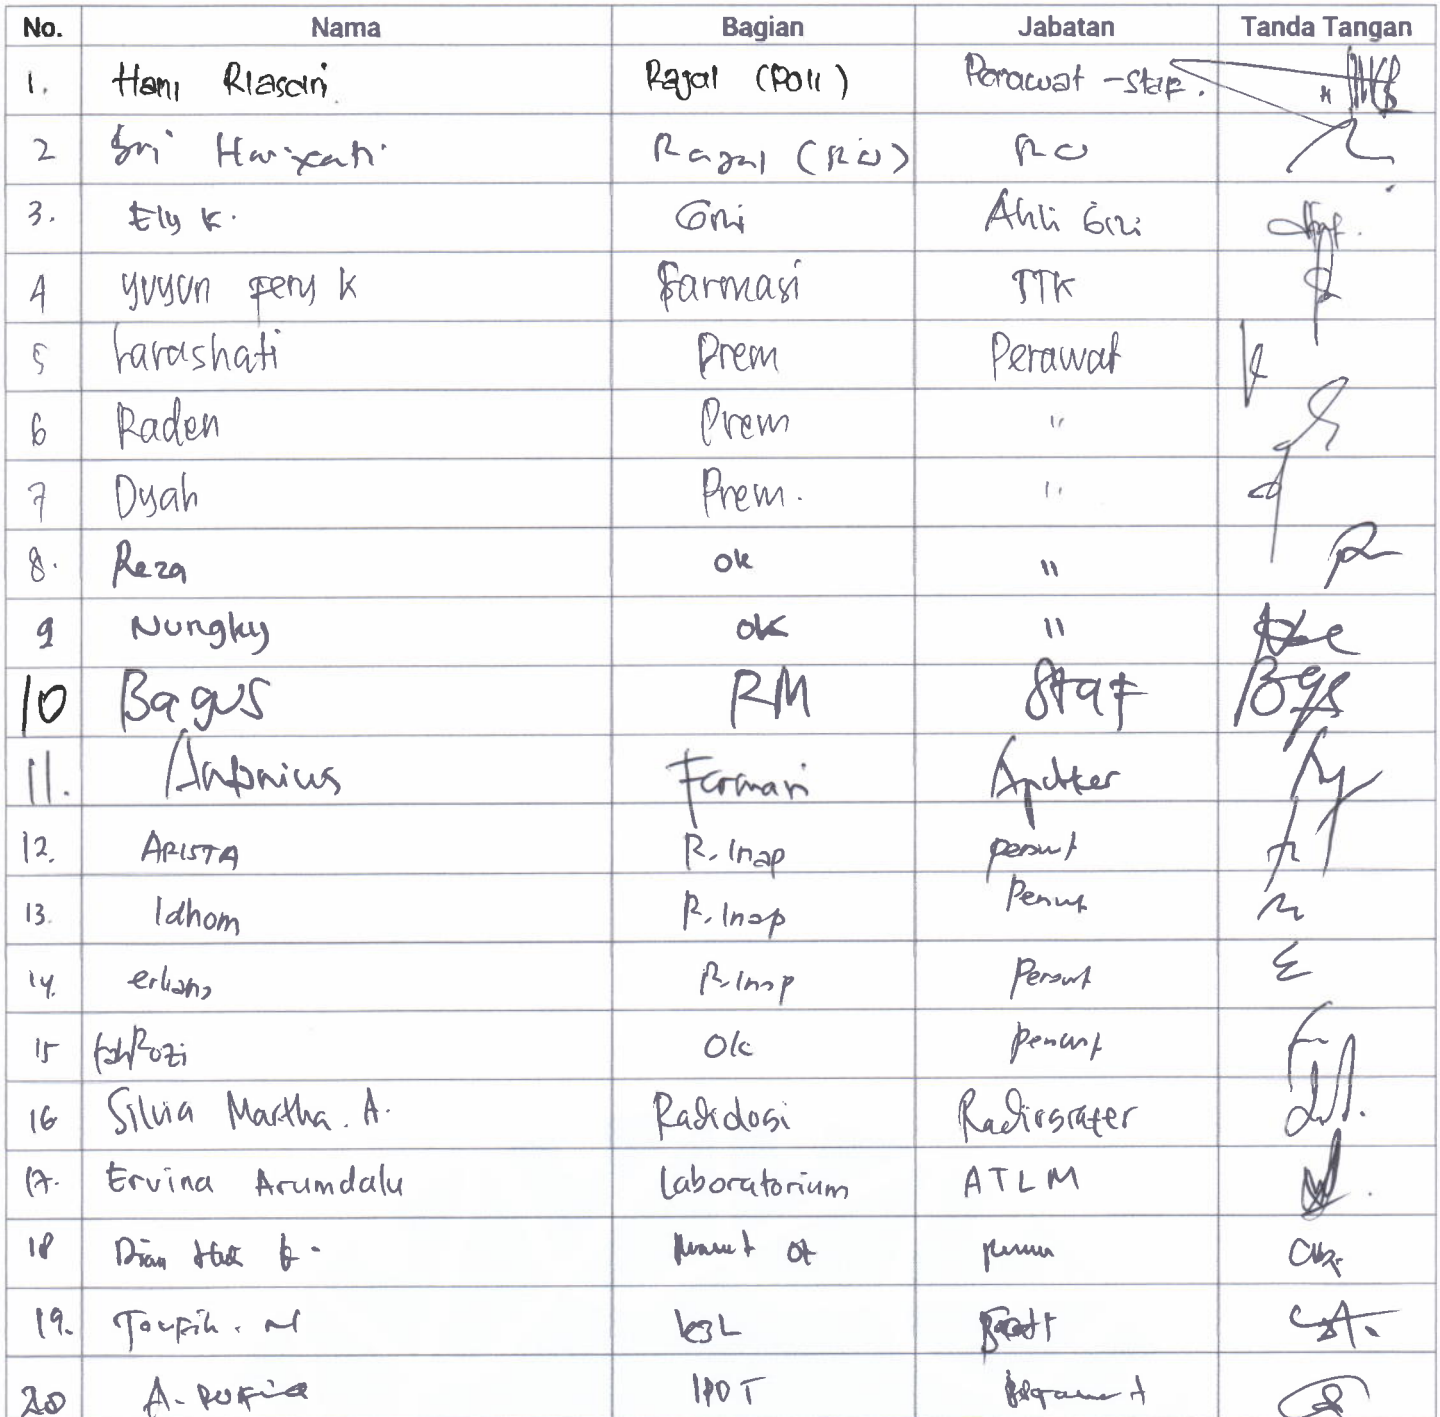 No. Nama Bagian Jabatan Tanda Tangan
1. Hani Riasari Rajal (Poli) Perawat - Staf.
2 Sri Hariyati Rajal (RO) RO
3. Ely K. Gizi Ahli Gizi
4 Yuyun Fery K Farmasi TTK
5 Larashati Prem Perawat
6 Raden Prem "
7 Dyah Prem. "
8. Reza OK "
9 Nungky OK "
10 Bagus RM Staf Bgs
11. Antonius Farmasi Apoteker
12. ARISTA R. Inap
13. Idhom R. Inap
14. R. Inap
15 OK
16 Silvia Martha. A. Radiologi Radiografer
17. Ervina Arumdalu Laboratorium ATLM
18 Dian
19. Taufik. M K3L
20 A.